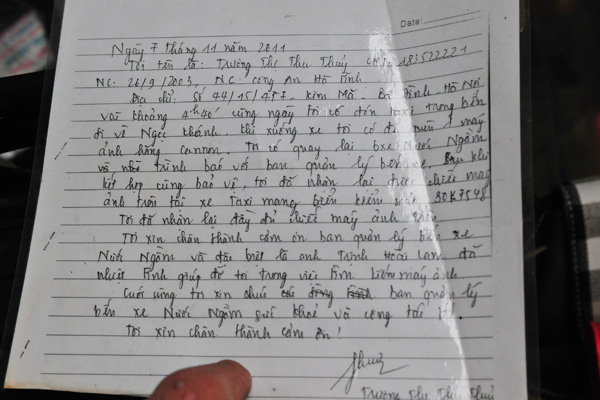 Date:
Ngày 7 tháng 11 năm 2011
Tôi tên là: Trương Thị Thu Thuỷ CMT 183522221
NC: 26/9/2003, NC: công An Hà Tĩnh
Địa chỉ: Số 44/15/477 Kim Mã. Ba Đình Hà Nội
vào khoảng 4h40 cùng ngày tôi có đón taxi trong bến
đi về Ngọc Khánh. Khi xuống xe tôi có để quên 1 máy
ảnh hãng cannon. Tôi có quay lại bxe Nước Ngầm
và trình báo với ban quản lý bến xe. Sau khi
kết hợp cùng bảo vệ, tôi đã nhận lại được chiếc máy
ảnh trên tài xe Taxi mang biển kiểm soát 30K7548
Tôi đã nhận lại đầy đủ chiếc máy ảnh trên
Tôi xin chân thành cảm ơn ban quản lý bến xe
Nước Ngầm và đặc biệt là anh Trịnh Hoài Lam đã
nhiệt tình giúp đỡ tôi trong việc tìm kiếm máy ảnh
Cuối cùng tôi xin chúc ban quản lý
bến xe Nước Ngầm sức khoẻ và công tác tốt.
Tôi xin chân thành cảm ơn!
Thuỷ
Trương Thị Thu Thuỷ